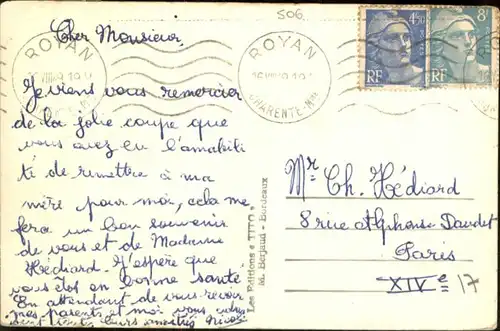 506.
Cher Monsieur,
ROYAN
CHARENTE-Mme
ROYAN
4F50
8F
RF
RF
Je viens vous remercier
de la jolie coupe que
vous avez eu l'amabili
té de remettre à ma
mère pour moi, cela me
fera un bon souvenir
de vous et de Madame
Hédiard. J'espère que
vous êtes en bonne santé
En attendant de vous revoir
mes parents et moi vous
leurs amitiés
Les Editions "TITO"
M. Berjaud - Bordeaux
Mr Ch. Hédiard
8 rue Alphonse Daudet
Paris
XIVe 17